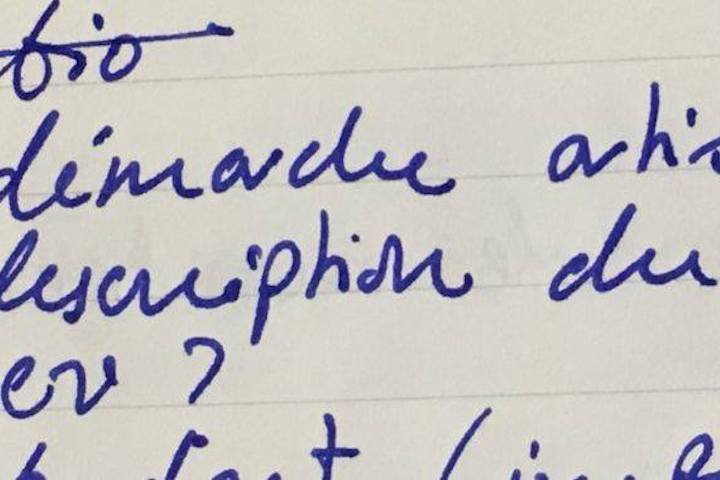 bio
démarche artis
description du
er ?